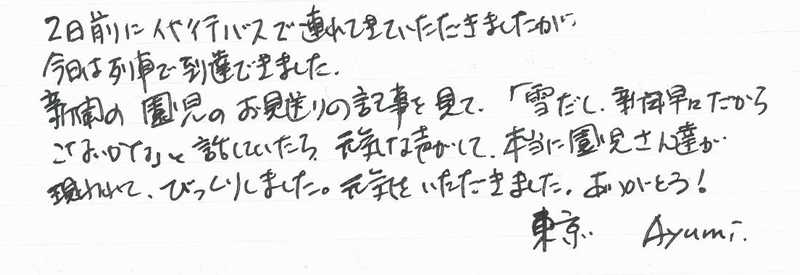 2日前に代行バスで連れてきていただきましたが
今日は列車で到達できました.
新聞の園児のお見送りの記事を見て、「雪だし、新年早々だから
こないかな」と話していたら、元気な声がして、本当に園児さん達が
現われて、びっくりしました。元気をいただきました。ありがとう!
東京 Ayumi.